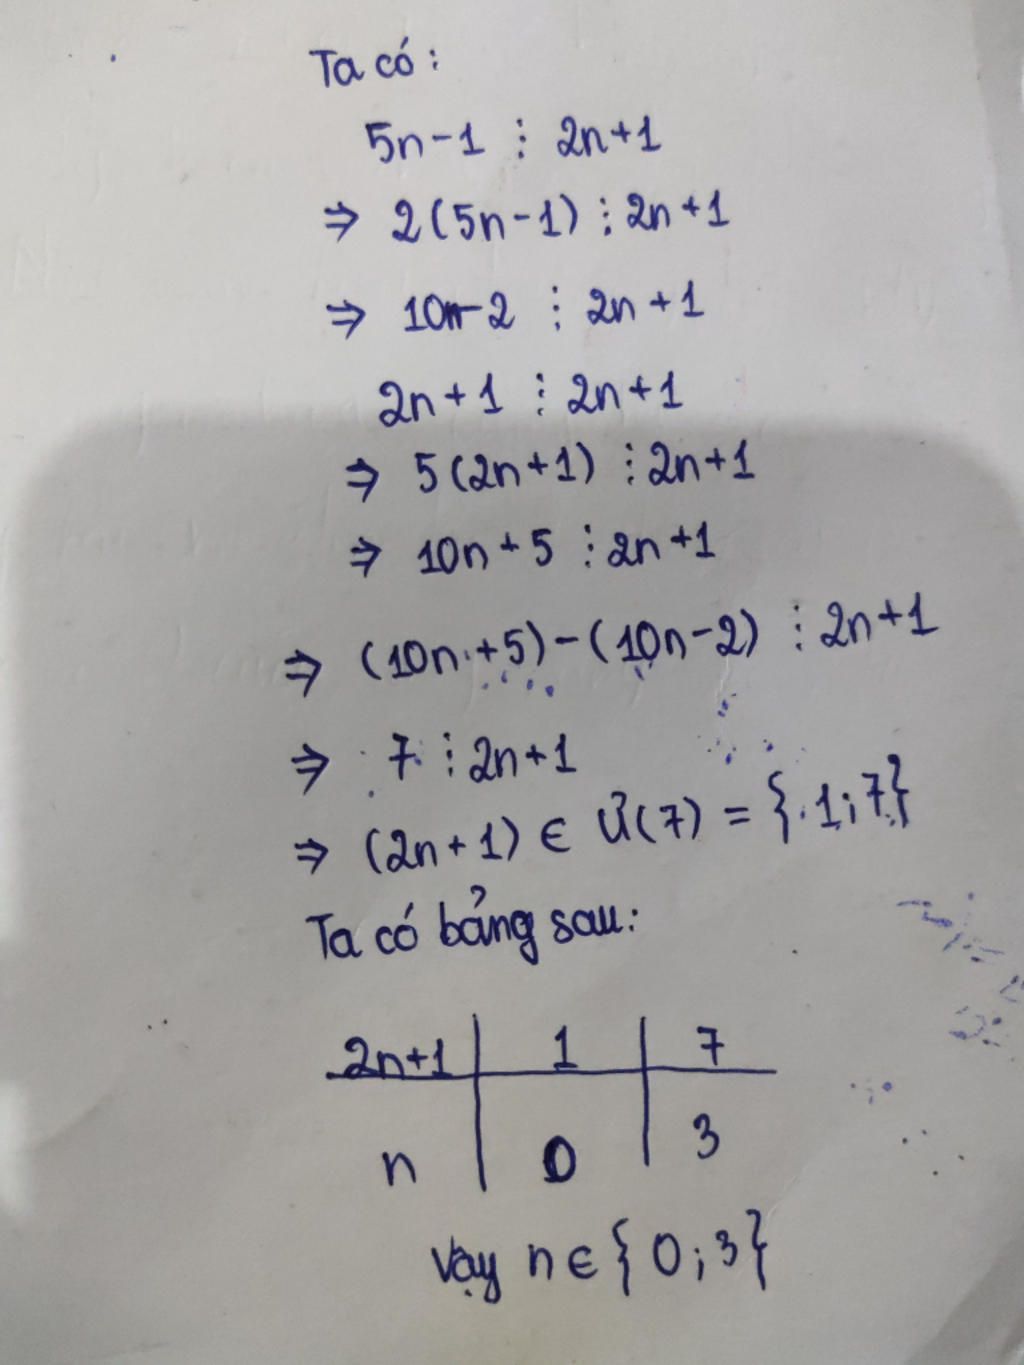 Ta có:
5n-1 ⋮ 2n+1
⇒ 2(5n-1) ⋮ 2n+1
⇒ 10n-2 ⋮ 2n+1
2n+1 ⋮ 2n+1
⇒ 5(2n+1) ⋮ 2n+1
⇒ 10n+5 ⋮ 2n+1
⇒ (10n+5)-(10n-2) ⋮ 2n+1
⇒ 7 ⋮ 2n+1
⇒ (2n+1) ∈ Ư(7) = {1;7}
Ta có bảng sau:
2n+1 | 1 | 7
n | 0 | 3
Vậy n ∈ {0;3}